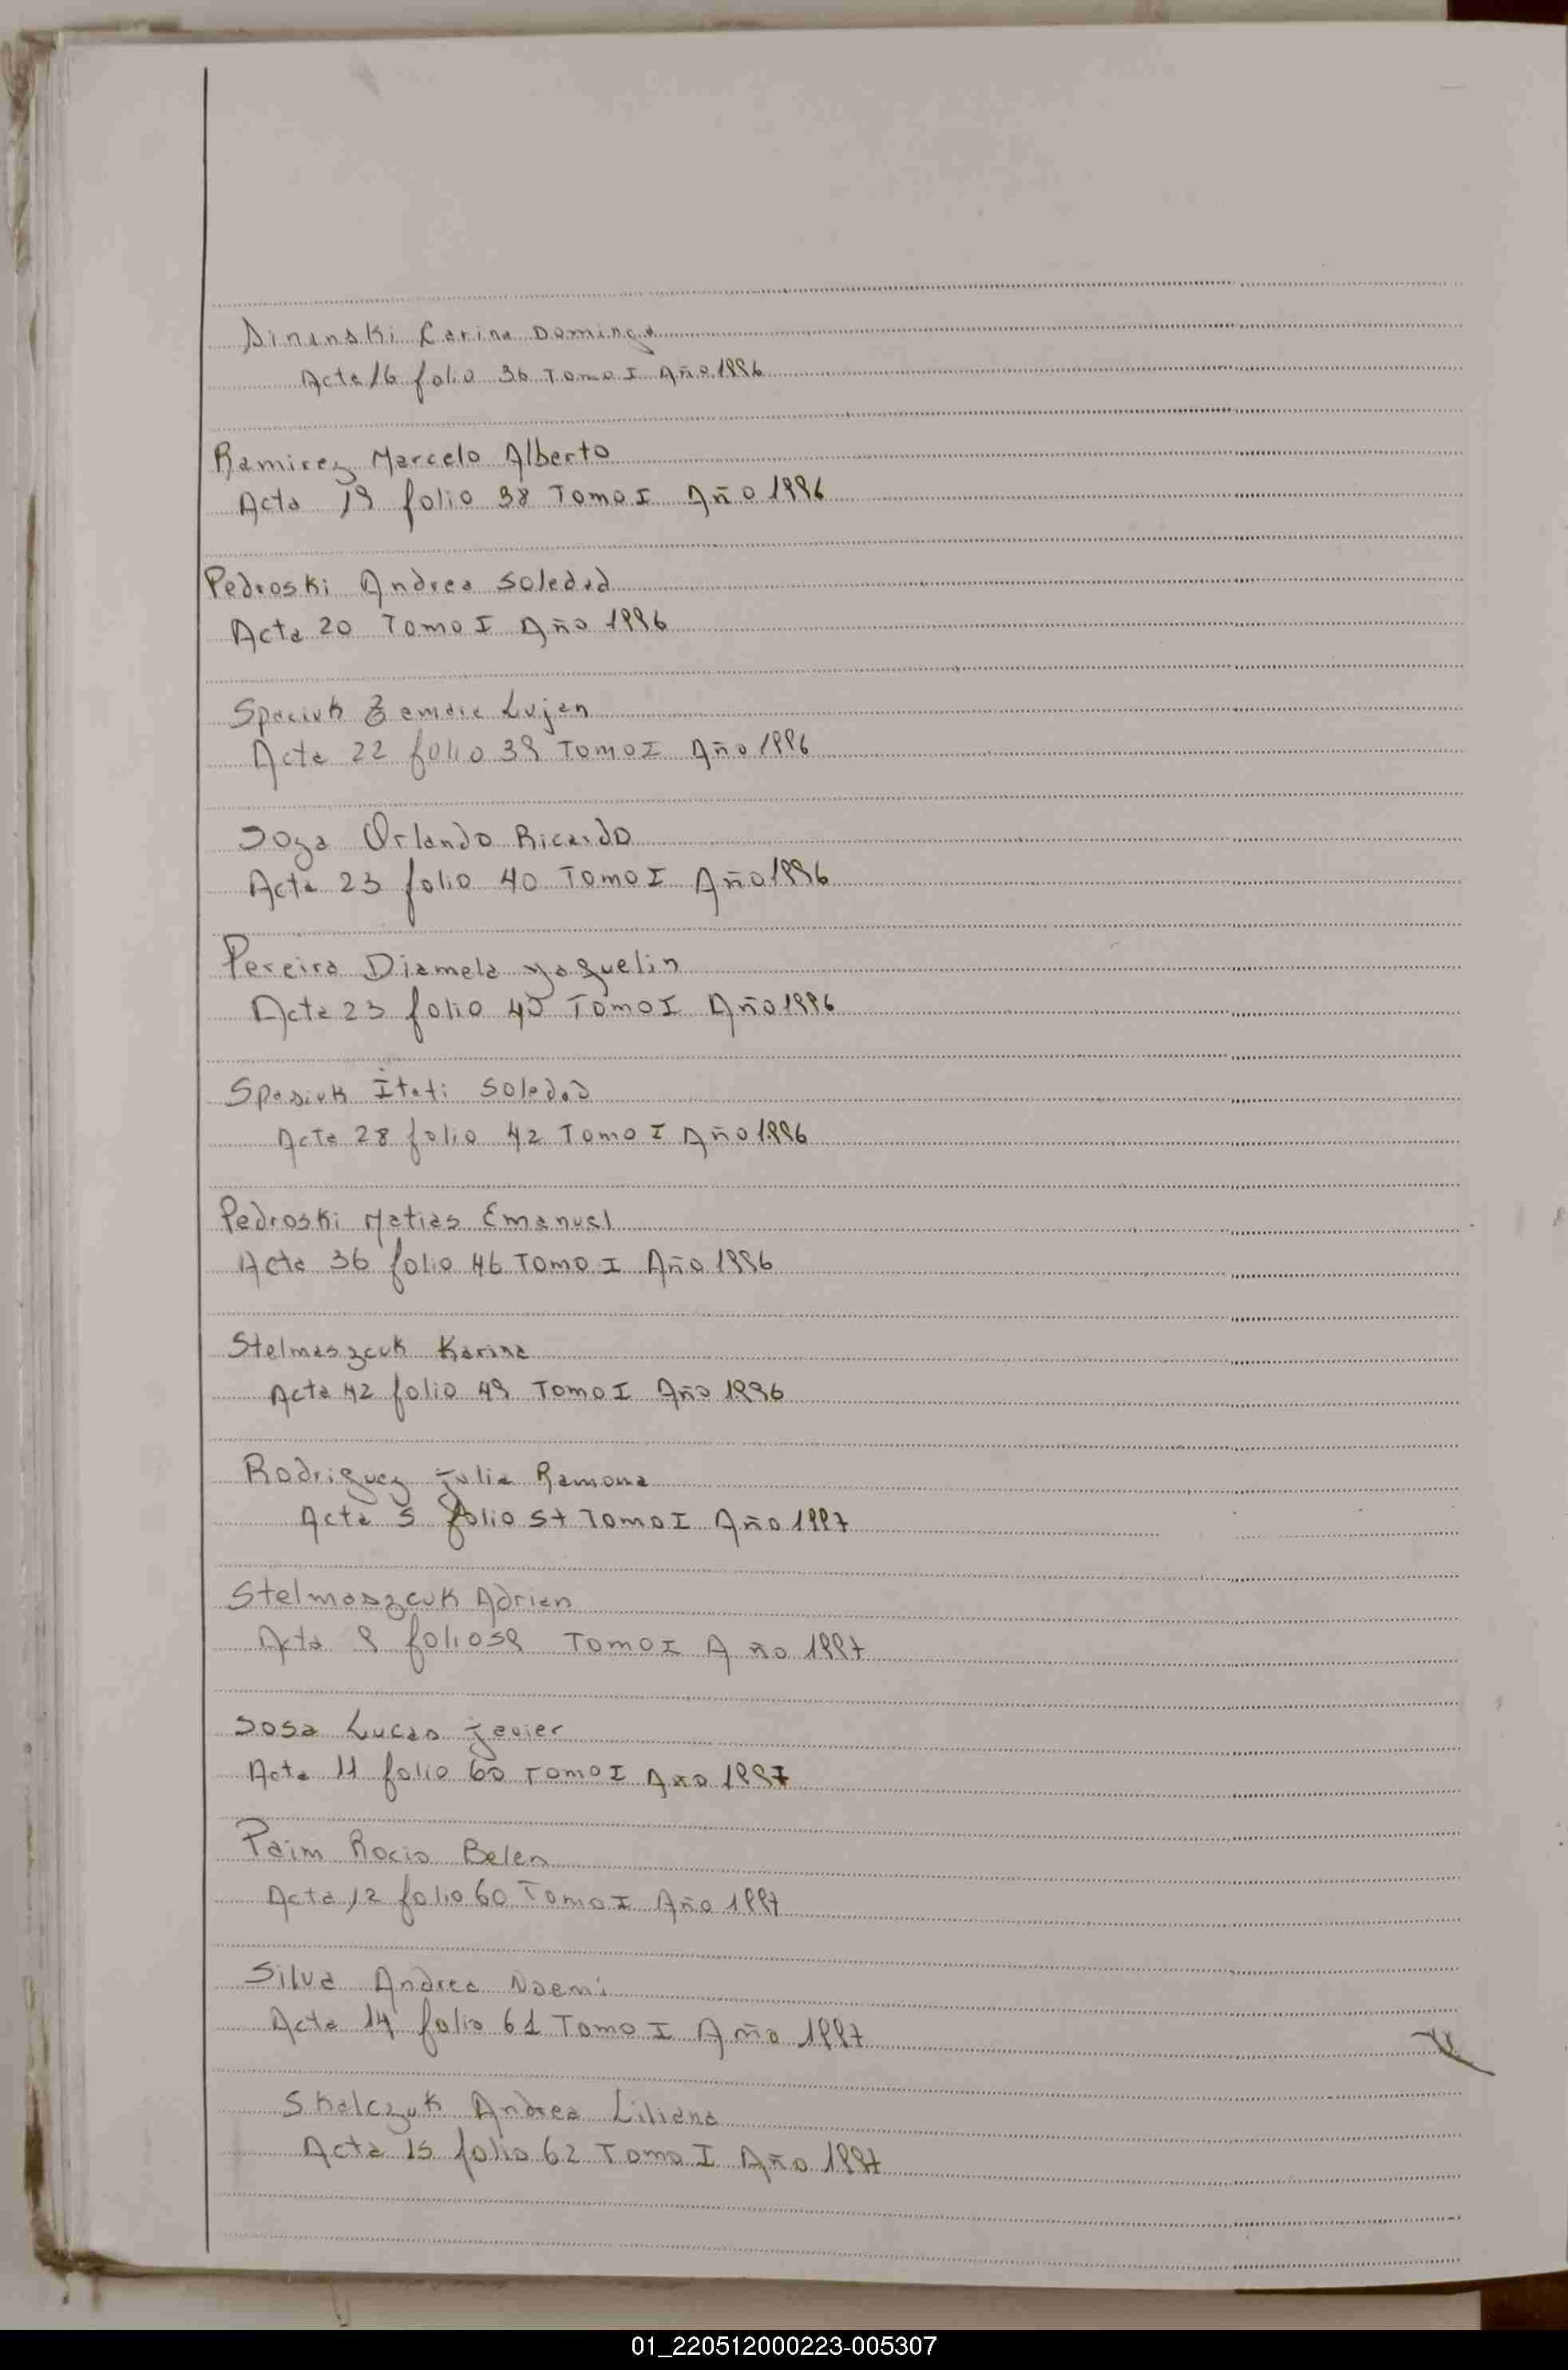 Sinanski Carina Dominga
Acta 16 folio 36 Tomo I Año 1996
Ramirez Marcelo Alberto
Acta 19 folio 38 Tomo I Año 1996
Pedroski Andrea Soledad
Acta 20 Tomo I Año 1996
Spaciuk Lujan
Acta 22 folio 39 Tomo I Año 1996
Soza Orlando Ricardo
Acta 23 folio 40 Tomo I Año 1996
Pereira Diamela yaquelin
Acta 23 folio 40 Tomo I Año 1996
Spasiuk Itati Soledad
Acta 28 folio 42 Tomo I Año 1996
Pedroski Matias Emanuel
Acta 36 folio 46 Tomo I Año 1996
Stelmaszcuk Karina
Acta 42 folio 49 Tomo I Año 1996
Rodriguez julia Ramona
Acta 5 folio 57 Tomo I Año 1997
Stelmaszcuk Adrian
Acta 9 folio 59 Tomo I Año 1997
Sosa Lucas javier
Acta 11 folio 60 Tomo I Año 1997
Paim Rocio Belen
Acta 12 folio 60 Tomo I Año 1997
Silva Andrea Noemi
Acta 14 folio 61 Tomo I Año 1997
Skalczuk Andrea Liliana
Acta 15 folio 62 Tomo I Año 1997
01_220512000223-005307